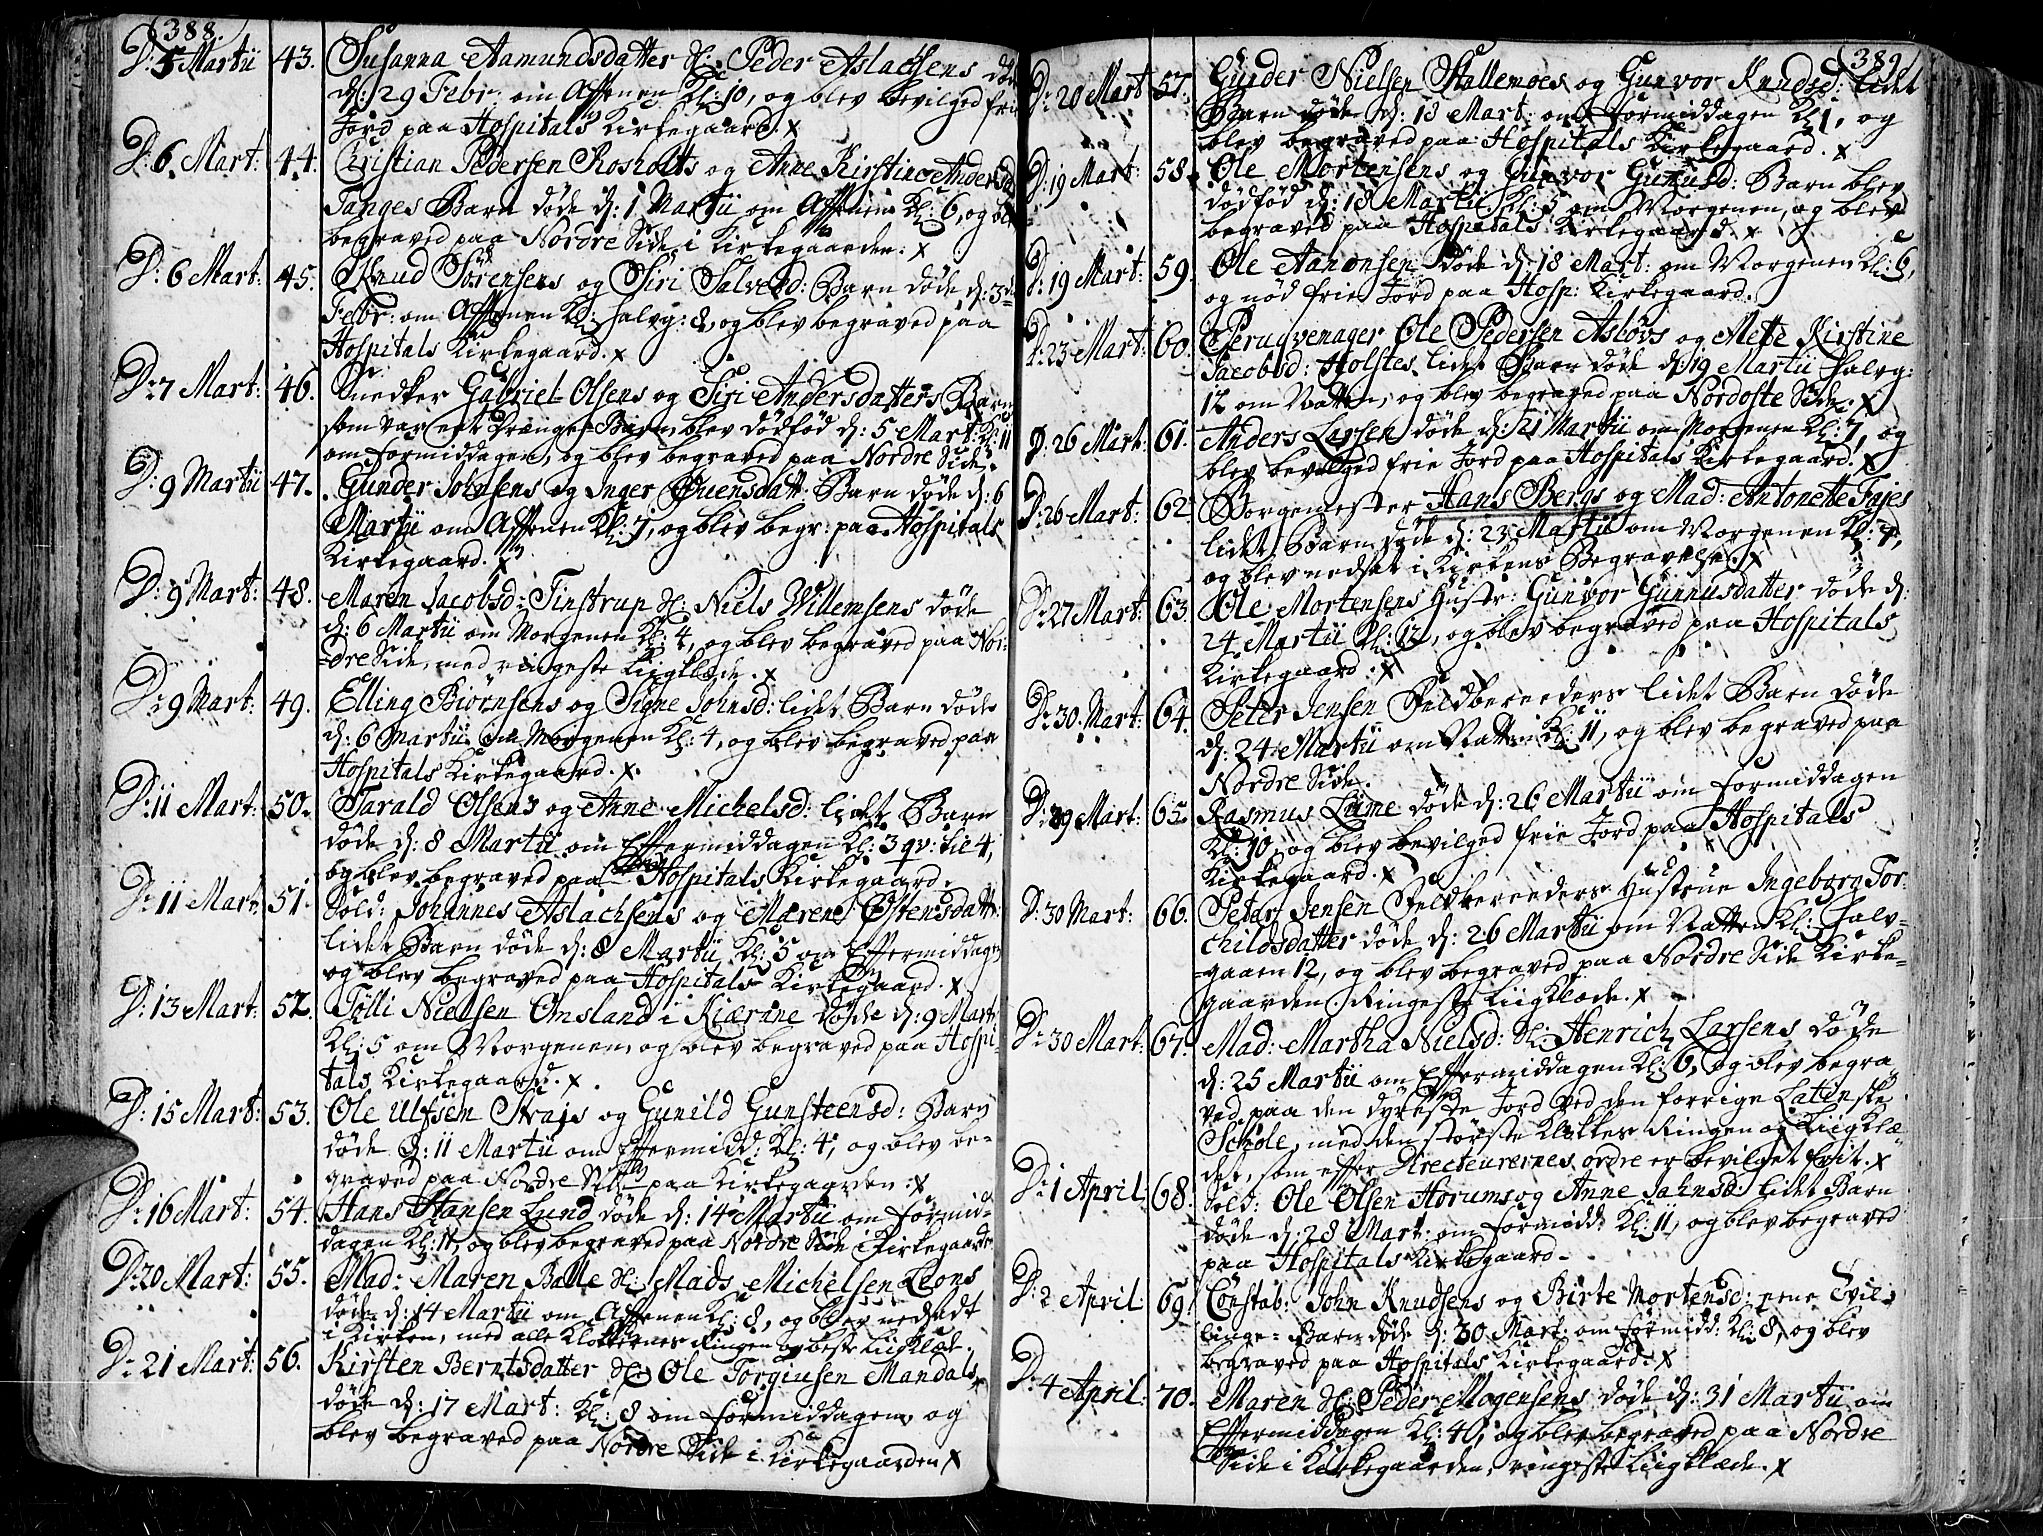 388.
D: 5 Martii 43. Susanna Aamundsdatter Sl: Peder Aslachsens døde
d: 29 Febr: om Afftenen Kl: 10, og blev bevilged frie
Jord paa Hospitals Kirkegaard. x
D: 6 Mart: 44. Christian Pedersen Rosholts og Anne Kirstine Andersd:
Tanges Barn døde d: 1 Martii om Afftenen Kl: 6, og blev
begraved paa Nordre Side i Kirkegaarden: x
D: 6 Mart: 45. Knud Sörensens og Siri Salvesd: Barn døde d: 3de
Febr: om Afftenen Kl: halvg: 8, og blev begraved paa
Hospitals Kirkegaard. x
D: 7 Mart: 46. Snedker Gabriel Olsens og Siri Andersdatters Barn
som var ert Drenge-Barn, blev dødfød d: 5 Mart: Kl: 11
om formiddagen, og blev begraved paa Nordre Side.
D: 9 Martii 47. Gunder Johnsens og Inger Ouensdatt: Barn døde d: 6
Martii om Afftenen Kl: 7, og blev begr: paa Hospitals
Kirkegaard. x
D: 9 Mart: 48. Maren Jacobsd: Tinstrup Sl: Niels Willemsens døde
d: 6 Martii om Morgenen Kl: 4, og blev begraved paa Nor-
dre Side, med ringeste Liigklæde. x
D: 9 Mart: 49. Elling Biørnsens og Signe Johnsd: lidet Barn døde
d: 6 Martii om Morgenen Kl: 4, og blev begraved paa
Hospitals Kirkegaard. x
D: 11 Mart: 50. Tarald Olsens og Anne Michelsd: lidet Barn
døde d: 8 Martii om Efftermiddagen Kl: 3 qv: til 4,
og blev begraved paa Hospitals Kirkegaard.
D: 11 Mart: 51. Sold: Johannes Aslachsens og Maren Ostensdatt:
lidet Barn døde d: 8 Martii Kl: 5 om Efftermiddagen
og blev begraved paa Hospitals Kirkegaard. x
D: 13 Mart: 52. Tölli Nielsen Omsland i Kiærene døde d: 9 Mart:
Kl: 5 om Morgenen, og blev begraved paa Hospi-
tals Kirkegaard. x
D: 15 Mart: 53. Ole Ulfsen Strajs og Gunild Gunsteensd: Barn
døde d: 11 Martii om Efftermidd: Kl: 4, og blev be-
graved paa Nordre Side paa Kirkegaarden: x
D: 16 Mart: 54. Hans Hansen Lund døde d: 14 Martii om formid-
dagen Kl: 11, og blev begraved paa Nordre Side i Kirkegaarden
D: 20 Mart: 55. Mad: Maren Balle Sl: Mads Michelsen Leons
døde d: 14 Martii om Afftenen Kl: 8, og blev nedsadt
i Kirken, med alle Klokkernes Ringen og beste Liigklæde.
D: 21 Mart: 56. Kirsten Berntsdatter Sl: Ole Torgiusen Mandals,
døde d: 17 Mart: Kl: 8 om formiddagen, og
blev begraved paa Nordre Side i Kirkegaarden x
389.
D: 20 Mart 57. Gunder Nielsen Stallemoes og Gunvor Knudsd: lidet
Barn døde d: 18 Mart: om formiddagen Kl 1, og
blev begraved paa Hospitals Kirkegaard. x
D: 19 Mart: 58. Ole Mortensens og Gunvor Gunnusd: Barn blev
dødfød d: 18 Martii Kl: 5 om Morgenen, og blev
begraved paa Hospitals Kirkegaard. x
D: 19 Mart: 59. Ole Aanonsen døde d: 18 Mart: om Morgenen Kl: 6,
og nød frie Jord paa Hosp: Kirkegaard.
D: 23 Mart: 60. Peruqvemager Ole Pedersen Asløvs og Mette Kirstine
Jacobsd: Holstes lidet Barn døde d: 19 Martii halvg:
12 om Natten, og blev begraved paa Nordoste Side. x
D: 26 Mart: 61. Anders Larsen døde d: 21 Martii om Morgenen Kl: 7, og
blev bevilged frie Jord paa Hospitals Kirkegaard. x
D: 26 Mart: 62. Borgemester Hans Bergs og Mad: Antonette Fajes
lidet Barn døde d: 23 Martii om Morgenen Kl: 4,
og blev nedsat i Kirkens Begravelse. x
D: 27 Mart: 63. Ole Mortensens Hustr: Gunvor Gunnusdatter døde d:
24 Martii Kl: 12, og blev begraved paa Hospitals
Kirkegaard. x
D: 30 Mart: 64. Peter Jensen Feldbereeders lidet Barn døde
d: 24 Martii om Natten Kl: 11, og blev begraved paa
Nordre Side
D: 29 Mart: 65. Rasmus Lüme døde d: 26 Martii om formiddagen
Kl: 10, og blev bevilged frie Jord paa Hospitals
Kirkegaard. x
D: 30 Mart: 66. Peter Jensen Feldbereeders Hustrue Ingeborg Tor-
childsdatter døde d: 26 Martii om Natten Kl: halv-
gaaen 12, og blev begraved paa Nordre Side Kirke-
gaarden. Ringeste Liigklæde. x
D: 30 Mart: 67. Mad: Martha Nielsd: Sl: Henrich Larsens døde
d: 25 Martii om Efftermiddagen Kl: 6, og blev begra-
ved paa den dyreste Jord ved den forrige Latinske
Schole, med den største Klokkes Ringen og Liigklæ-
det, som effter Directeurernes ordre er bevilget frit. x
D: 1 April 68. Sold: Ole Olsen Horums og Anne Jahnsd: lidet Barn
døde d: 28 Mart: om formidd: Kl: 11, og blev begraved
paa Hospitals Kirkegaard.
D: 2 April: 69. Constab: John Knudsens og Birte Mortensd: eene Tvil-
linge-Barn døde d: 30 Mart: om formidd: Kl: 8, og blev
begraved paa Hospitals Kirkegaard. x
D: 4 April: 70. Maren Sl: Peder Mogensens døde d: 31 Martii om
Efftermiddagen Kl: 4, og blev begraved paa Nordre
Side i Kirkegaarden, ringeste Liigklæde. x